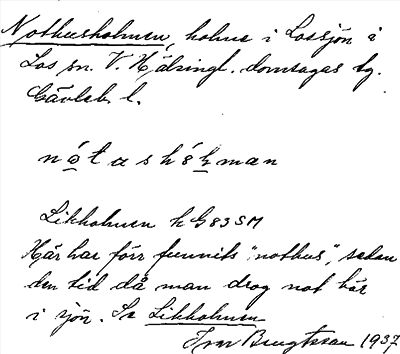 Nothusholmen, holme i Lossjön i
Los sn. V. Hälsingl. domsagas tg.
Gävleb. l.
nó̱tashó̱ḵman
Likholmen k G83SM
Här har förr funnits "nothus", sedan
den tid då man drog not här
i sjön. Se Likholmen
Ivar Bengtsson 1937